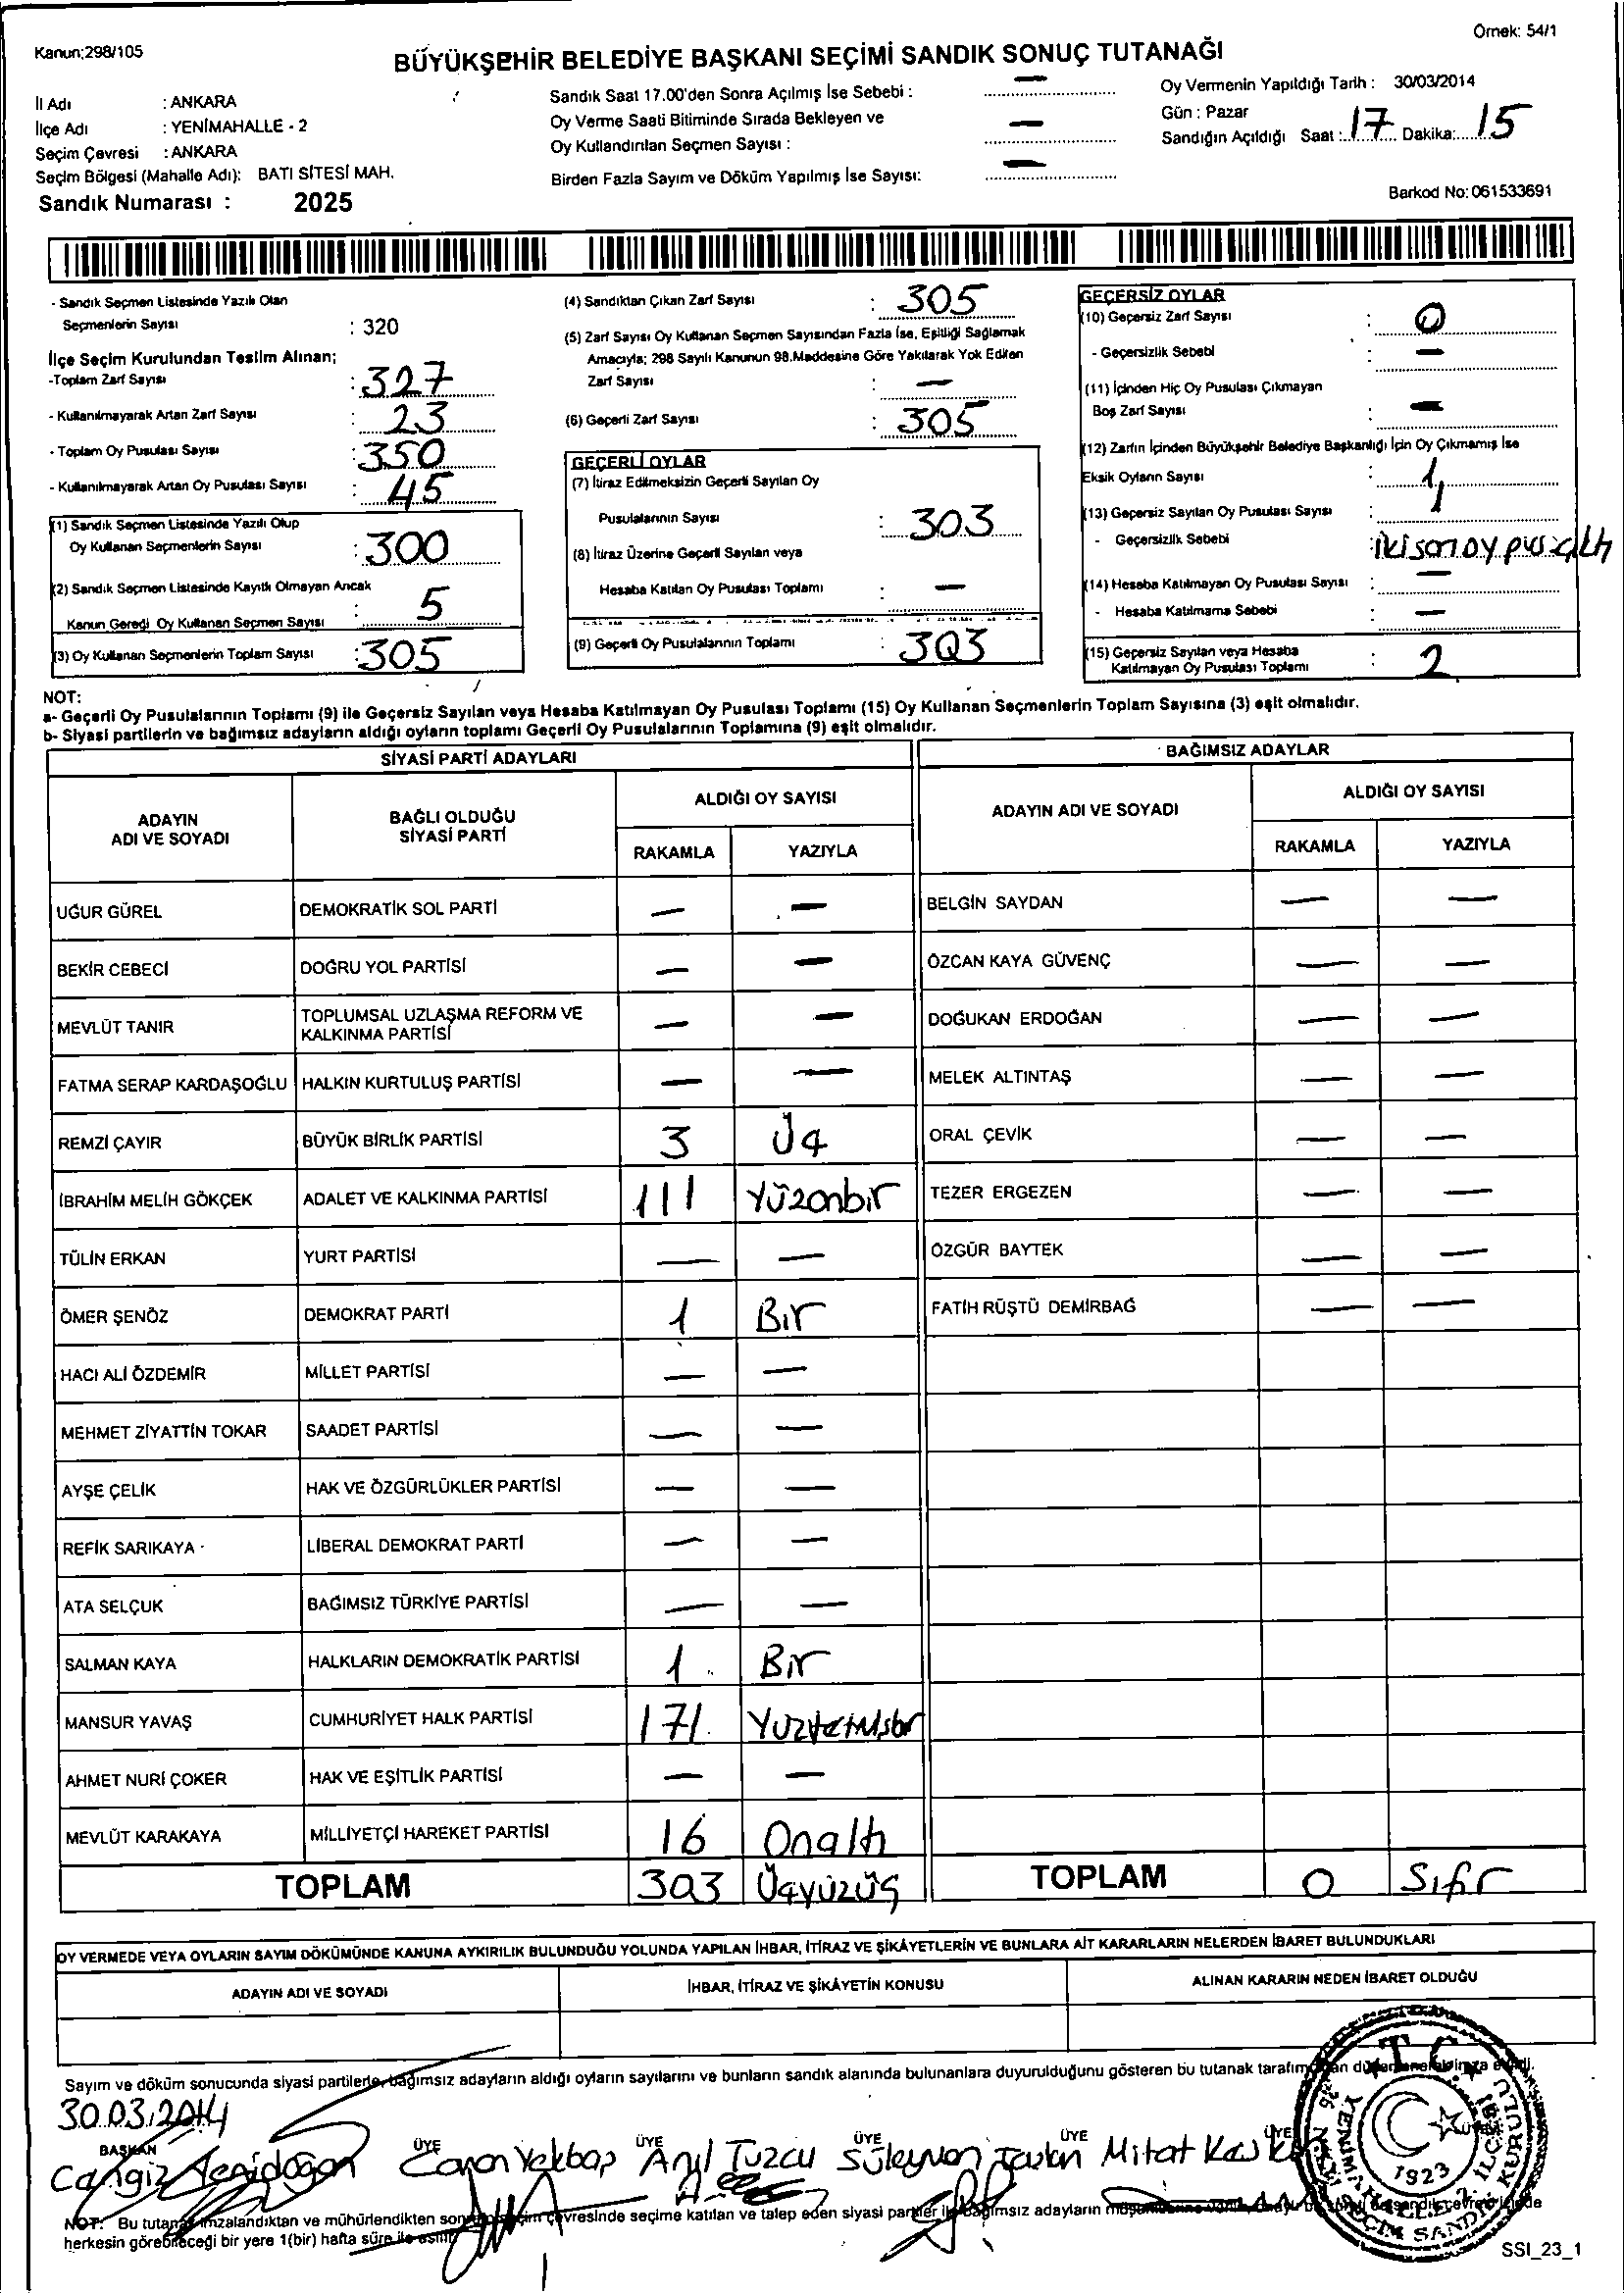 Kanun:298/105
Örnek: 54/1
BÜYÜKŞEHİR BELEDİYE BAŞKANI SEÇİMİ SANDIK SONUÇ TUTANAĞI
İl Adı : ANKARA
İlçe Adı : YENİMAHALLE - 2
Seçim Çevresi : ANKARA
Seçim Bölgesi (Mahalle Adı): BATI SİTESİ MAH.
Sandık Numarası : 2025
Sandık Saat 17.00'den Sonra Açılmış İse Sebebi : —
Oy Verme Saati Bitiminde Sırada Bekleyen ve
Oy Kullandırılan Seçmen Sayısı : —
Birden Fazla Sayım ve Döküm Yapılmış İse Sayısı: —
Oy Vermenin Yapıldığı Tarih : 30/03/2014
Gün : Pazar
Sandığın Açıldığı Saat : 17 Dakika: 15
Barkod No: 061533691
- Sandık Seçmen Listesinde Yazılı Olan
Seçmenlerin Sayısı : 320
İlçe Seçim Kurulundan Teslim Alınan;
-Toplam Zarf Sayısı : 327
- Kullanılmayarak Artan Zarf Sayısı : 23
- Toplam Oy Pusulası Sayısı : 350
- Kullanılmayarak Artan Oy Pusulası Sayısı : 45
(1) Sandık Seçmen Listesinde Yazılı Olup
Oy Kullanan Seçmenlerin Sayısı : 300
(2) Sandık Seçmen Listesinde Kayıtlı Olmayan Ancak
Kanun Gereği Oy Kullanan Seçmen Sayısı : 5
(3) Oy Kullanan Seçmenlerin Toplam Sayısı : 305
(4) Sandıktan Çıkan Zarf Sayısı : 305
(5) Zarf Sayısı Oy Kullanan Seçmen Sayısından Fazla İse, Eşitliği Sağlamak
Amacıyla; 298 Sayılı Kanunun 98.Maddesine Göre Yakılarak Yok Edilen
Zarf Sayısı : —
(6) Geçerli Zarf Sayısı : 305
GEÇERLİ OYLAR
(7) İtiraz Edilmeksizin Geçerli Sayılan Oy
Pusulalarının Sayısı : 303
(8) İtiraz Üzerine Geçerli Sayılan veya
Hesaba Katılan Oy Pusulası Toplamı : —
(9) Geçerli Oy Pusulalarının Toplamı : 303
GEÇERSİZ OYLAR
(10) Geçersiz Zarf Sayısı : 0
- Geçersizlik Sebebi : —
(11) İçinden Hiç Oy Pusulası Çıkmayan
Boş Zarf Sayısı : —
(12) Zarfın İçinden Büyükşehir Belediye Başkanlığı İçin Oy Çıkmamış İse
Eksik Oyların Sayısı : 1
(13) Geçersiz Sayılan Oy Pusulası Sayısı :
- Geçersizlik Sebebi :
(14) Hesaba Katılmayan Oy Pusulası Sayısı : —
- Hesaba Katılmama Sebebi : —
(15) Geçersiz Sayılan veya Hesaba
Katılmayan Oy Pusulası Toplamı : 2
NOT:
a- Geçerli Oy Pusulalarının Toplamı (9) ile Geçersiz Sayılan veya Hesaba Katılmayan Oy Pusulası Toplamı (15) Oy Kullanan Seçmenlerin Toplam Sayısına (3) eşit olmalıdır.
b- Siyasi partilerin ve bağımsız adayların aldığı oyların toplamı Geçerli Oy Pusulalarının Toplamına (9) eşit olmalıdır.
SİYASİ PARTİ ADAYLARI
ADAYIN ADI VE SOYADI
BAĞLI OLDUĞU SİYASİ PARTİ
ALDIĞI OY SAYISI
RAKAMLA YAZIYLA
UĞUR GÜREL DEMOKRATİK SOL PARTİ — —
BEKİR CEBECİ DOĞRU YOL PARTİSİ — —
MEVLÜT TANIR TOPLUMSAL UZLAŞMA REFORM VE KALKINMA PARTİSİ — —
FATMA SERAP KARDAŞOĞLU HALKIN KURTULUŞ PARTİSİ — —
REMZİ ÇAYIR BÜYÜK BİRLİK PARTİSİ 3 Üç
İBRAHİM MELİH GÖKÇEK ADALET VE KALKINMA PARTİSİ 111 Yüzonbir
TÜLİN ERKAN YURT PARTİSİ — —
ÖMER ŞENÖZ DEMOKRAT PARTİ 1 Bir
HACI ALİ ÖZDEMİR MİLLET PARTİSİ — —
MEHMET ZİYATTİN TOKAR SAADET PARTİSİ — —
AYŞE ÇELİK HAK VE ÖZGÜRLÜKLER PARTİSİ — —
REFİK SARIKAYA LİBERAL DEMOKRAT PARTİ — —
ATA SELÇUK BAĞIMSIZ TÜRKİYE PARTİSİ — —
SALMAN KAYA HALKLARIN DEMOKRATİK PARTİSİ 1 Bir
MANSUR YAVAŞ CUMHURİYET HALK PARTİSİ 171
AHMET NURİ ÇOKER HAK VE EŞİTLİK PARTİSİ — —
MEVLÜT KARAKAYA MİLLİYETÇİ HAREKET PARTİSİ 16 Onaltı
TOPLAM 303 Üçyüzüç
BAĞIMSIZ ADAYLAR
ADAYIN ADI VE SOYADI
ALDIĞI OY SAYISI
RAKAMLA YAZIYLA
BELGİN SAYDAN — —
ÖZCAN KAYA GÜVENÇ — —
DOĞUKAN ERDOĞAN — —
MELEK ALTINTAŞ — —
ORAL ÇEVİK — —
TEZER ERGEZEN — —
ÖZGÜR BAYTEK — —
FATİH RÜŞTÜ DEMİRBAĞ — —
TOPLAM 0 Sıfır
OY VERMEDE VEYA OYLARIN SAYIM DÖKÜMÜNDE KANUNA AYKIRILIK BULUNDUĞU YOLUNDA YAPILAN İHBAR, İTİRAZ VE ŞİKÂYETLERİN VE BUNLARA AİT KARARLARIN NELERDEN İBARET BULUNDUKLARI
ADAYIN ADI VE SOYADI
İHBAR, İTİRAZ VE ŞİKÂYETİN KONUSU
ALINAN KARARIN NEDEN İBARET OLDUĞU
Sayım ve döküm sonucunda siyasi partilerle, bağımsız adayların aldığı oyların sayılarını ve bunların sandık alanında bulunanlara duyurulduğunu gösteren bu tutanak
30.03.2014
BAŞKAN ÜYE ÜYE ÜYE ÜYE ÜYE
Anıl Tuzcu Süleyman Mitat
T.C.
1923
NOT: Bu tutanak imzalandıktan ve mühürlendikten sonra seçim çevresinde seçime katılan ve talep eden siyasi partiler ile bağımsız adayların
herkesin görebileceği bir yere 1(bir) hafta süre ile asılır.
SSI_23_1